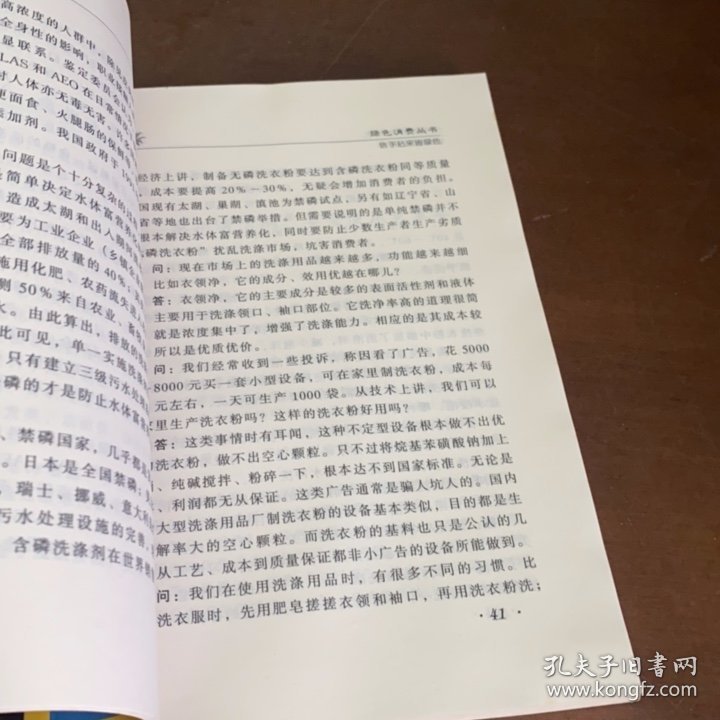 高浓度的人群中，
全身性的影响，职业
显联系。鉴定委员会认
LAS和AEO在日常
对人体亦无毒无害，许多
更面食、火腿肠的保鲜
添加剂。我国政府于
问题是个十分复杂的
简单决定水体富营养
造成太湖和出入湖河
要为工业企业（乡镇
全部排放量的40%；
施用化肥、农药流失
测50%来自农业、
水。由此算出，排放的
此可见，单一实施洗
只有建立三级污水处
磷的才是防止水体富
、禁磷国家，几乎都
。日本是全国禁磷；
，瑞士、挪威、意大利
污水处理设施的完善，
含磷洗涤剂在世界
绿色消费丛书
携手起来拥绿色
经济上讲，制备无磷洗衣粉要达到含磷洗衣粉同等质量
，成本要提高20%－30%，无疑会增加消费者的负担。
国现有太湖、巢湖、滇池为禁磷试点，另有如辽宁省、山
省等地也出台了禁磷举措。但需要说明的是单纯禁磷并不
根本解决水体富营养化，同时要防止少数生产者生产劣质
无磷洗衣粉”扰乱洗涤市场，坑害消费者。
问：现在市场上的洗涤用品越来越多，功能越来越细
比如衣领净，它的成分、效用优越在哪儿？
答：衣领净，它的主要成分是较多的表面活性剂和液体
主要用于洗涤领口、袖口部位。它洗净率高的道理很简
就是浓度集中了，增强了洗涤能力。相应的是其成本较
所以是优质优价。
问：我们经常收到一些投诉，称因看了广告，花5000
8000元买一套小型设备，可在家里制洗衣粉，成本每
元左右，一天可生产1000袋。从技术上讲，我们可以
家里生产洗衣粉吗？这样的洗衣粉好用吗？
答：这类事情时有耳闻，这种不定型设备根本做不出优
洗衣粉，做不出空心颗粒。只不过将烷基苯磺酸钠加上
、纯碱搅拌、粉碎一下，根本达不到国家标准。无论是
、利润都无从保证。这类广告通常是骗人坑人的。国内
大型洗涤用品厂制洗衣粉的设备基本类似，目的都是生
解率大的空心颗粒。而洗衣粉的基料也只是公认的几
从工艺、成本到质量保证都非小广告的设备所能做到。
问：我们在使用洗涤用品时，有很多不同的习惯。比
洗衣服时，先用肥皂搓搓衣领和袖口，再用洗衣粉洗；
·41·
孔夫子旧书网
www.kongfz.com